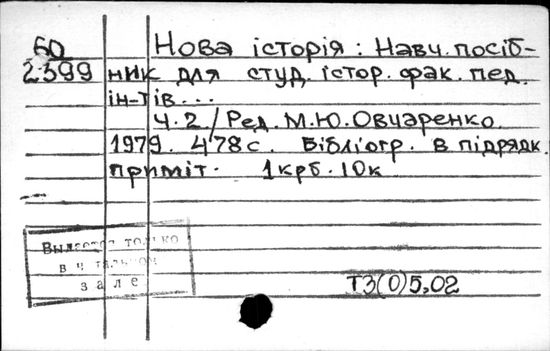 60
2399
Нова історія : Навч. посіб-
ник для студ. істор. фак. пед.
ін-тів...
Ч.2./Ред. М.Ю. Овчаренко.
1979. 478 с. Бібліогр. в підрядк.
приміт. 1 крб. 10 к
Выдается только
в читальном
зале
ТЗ(0)5,02